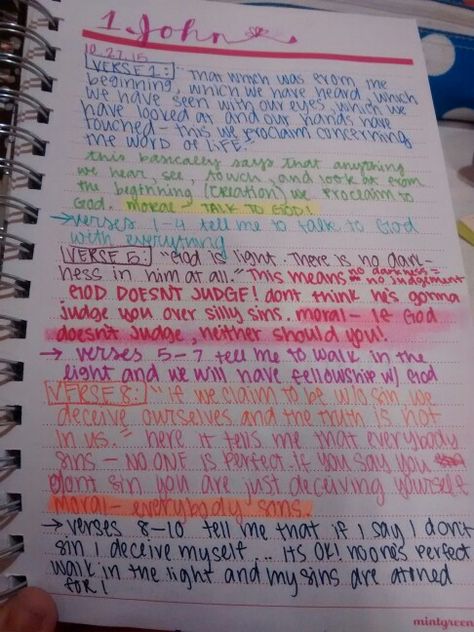 1 John
10.27.15
VERSE 1: "That which was from the
beginning, which we have heard, which
we have seen with our eyes, which we
have looked at and our hands have
touched - this we proclaim concerning
the word of life."
this basically says that anything
we hear, see, touch, and look at from
the beginning (creation) we proclaim to
God. moral - TALK TO GOD!
→ verses 1-4 tell me to talk to God
with everything
VERSE 5: "God is light. There is no dark-
ness in him at all." This means no darkness = no judgement
GOD DOESNT JUDGE! dont think he's gonna
judge you over silly sins. moral - If God
doesn't judge, neither should you!
→ verses 5-7 tell me to walk in the
light and we will have fellowship w/ God
VERSE 8: "if we claim to be w/o sin we
deceive ourselves and the truth is not
in us." here it tells me that everybody
sins - NO ONE is perfect. if you say you
dont sin you are just deceiving yourself
moral - everybody sins.
→ verses 8-10 tell me that if I say I dont
sin I deceive myself... its OK! no ones perfect
walk in the light and my sins are atoned
for!
mintgreen